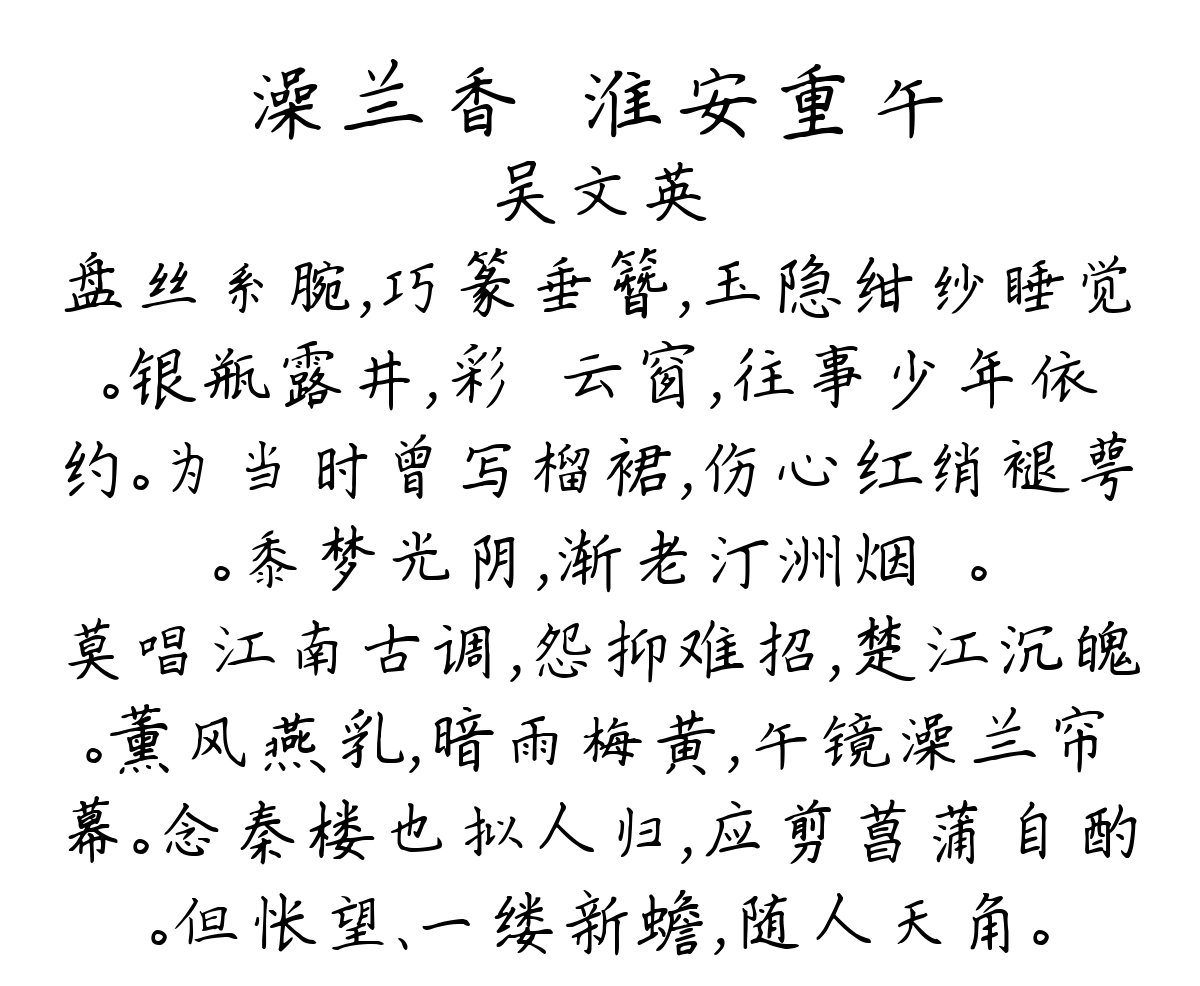 澡兰香 淮安重午
吴文英
盘丝系腕,巧篆垂簪,玉隐绀纱睡觉
。银瓶露井,彩 云窗,往事少年依
约。为当时曾写榴裙,伤心红绡褪萼
。黍梦光阴,渐老汀洲烟 。
莫唱江南古调,怨抑难招,楚江沉魄
。薰风燕乳,暗雨梅黄,午镜澡兰帘
幕。念秦楼也拟人归,应剪菖蒲自酌
。但怅望、一缕新蟾,随人天角。